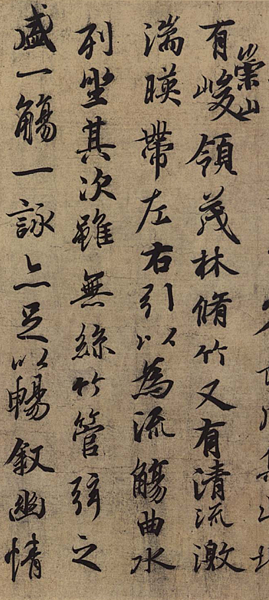 崇山
有峻領茂林脩竹又有清流激
湍暎帶左右引以為流觴曲水
列坐其次雖無絲竹管弦之
盛一觴一詠亦足以暢敘幽情